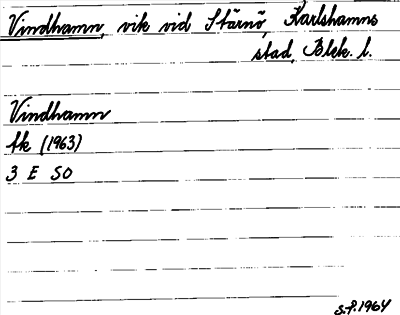 Vindhamn, vik vid Stärnö, Karlshamns
stad, Blek. l.
Vindhamn
fk (1963)
3 E SO
S.P. 1964